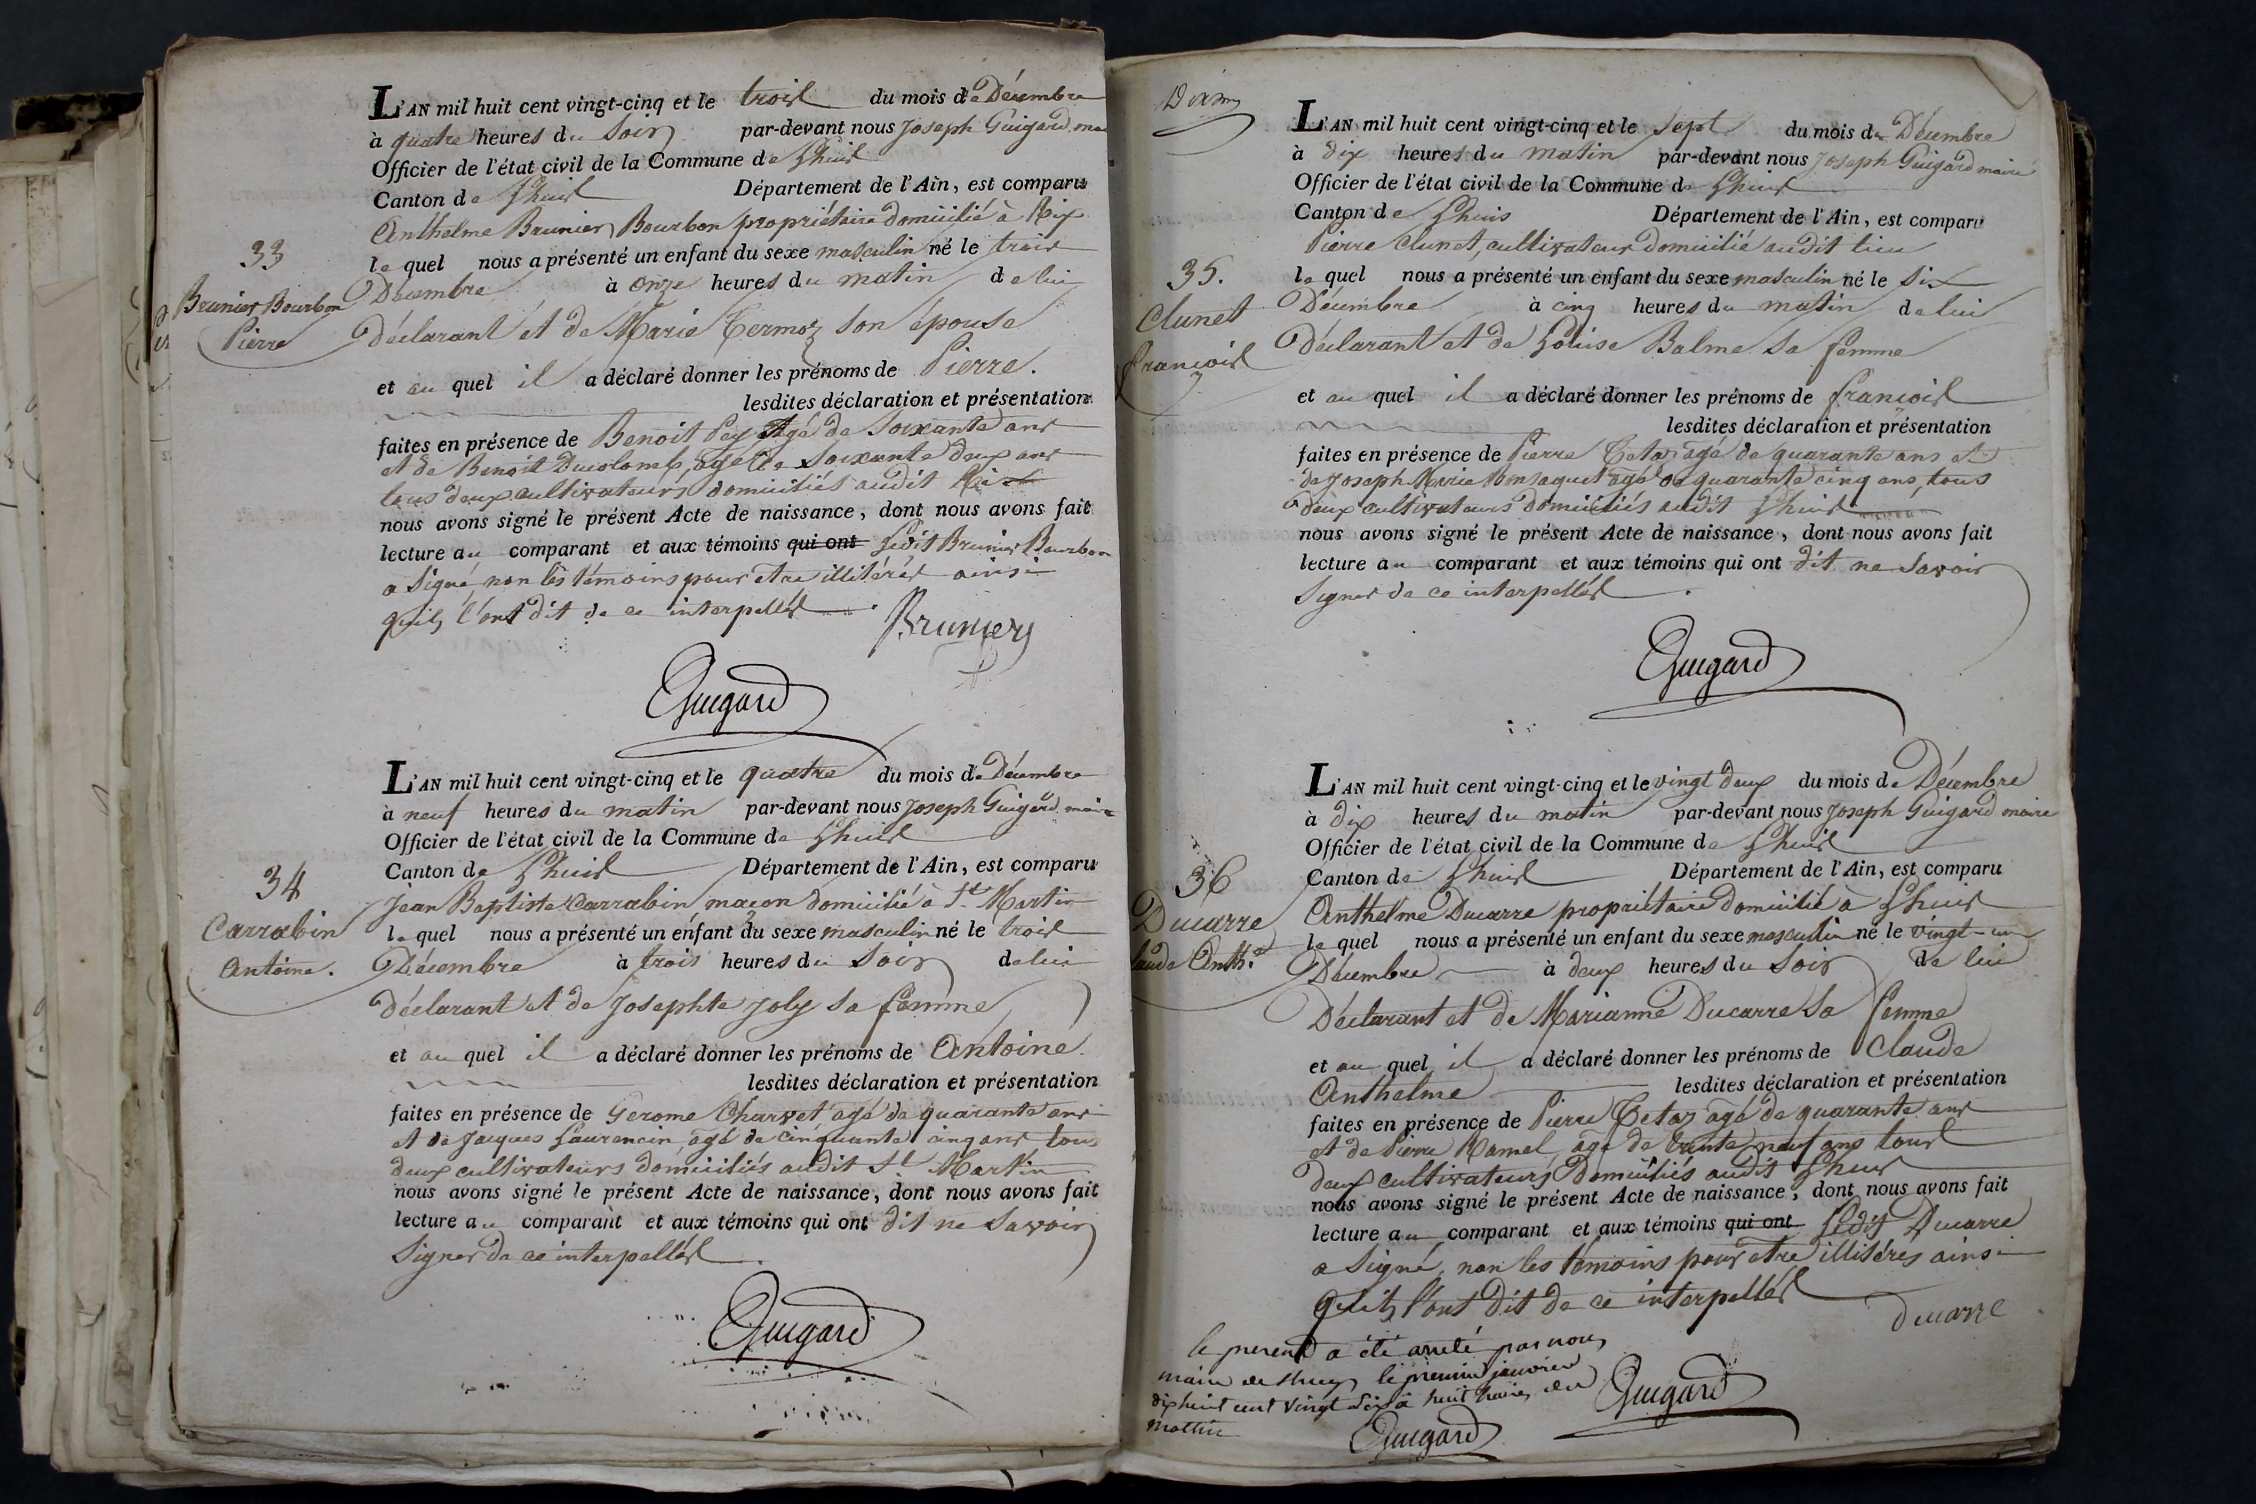 L'AN mil huit cent vingt-cinq et le trois du mois de Décembre
à quatre heures du Soir par-devant nous Joseph Guigard, mai
Officier de l'état civil de la Commune de Lhuis
Canton de Lhuis Département de l'Ain, est comparu
Anthelme Brunier Bourbon propriétaire domicilié à Rix
33
le quel nous a présenté un enfant du sexe masculin né le trois
Brunier Bourbon
Pierre
Décembre à onze heures du matin de lui
déclarant et de Marie Termoz son épouse
et au quel il a déclaré donner les prénoms de Pierre.
lesdites déclaration et présentation
faites en présence de Benoit Pey Agé de Soixante ans
et de Benoit Ducolomb, agé de Soixante deux ans
tous deux cultivateurs domiciliés audit Rix
nous avons signé le présent Acte de naissance, dont nous avons fait
lecture au comparant et aux témoins qui ont Ledit Brunier Bourbon
a Signé, non les témoins pour etre illitérés ainsi
quils l'ont dit de ce interpellés.
Brunier
Guigard
L'AN mil huit cent vingt-cinq et le quatre du mois de Décembre
à neuf heures du matin par-devant nous Joseph Guigard maire
Officier de l'état civil de la Commune de Lhuis
Canton de Lhuis Département de l'Ain, est comparu
Jean Baptiste Carrabin maçon domicilié à St. Martin
34
Carrabin
Antoine.
le quel nous a présenté un enfant du sexe masculin né le trois
Décembre à trois heures du Soir de lui
déclarant et de Josephte Joly sa femme
et au quel il a déclaré donner les prénoms de Antoine.
lesdites déclaration et présentation
faites en présence de Gerome Charvet agé de quarante ans
et de Jacques Laurencin agé de cinquante cinq ans tous
deux cultivateurs domiciliés audit St Martin
nous avons signé le présent Acte de naissance, dont nous avons fait
lecture au comparant et aux témoins qui ont dit ne Savoir
Signer de ce interpellés.
Guigard
L'AN mil huit cent vingt-cinq et le sept du mois de Décembre
à dix heures du matin par-devant nous Joseph Guigard maire
Officier de l'état civil de la Commune de Lhuis
Canton de Lhuis Département de l'Ain, est comparu
Pierre Clunet, cultivateur domicilié audit lieu
35.
Clunet
François
le quel nous a présenté un enfant du sexe masculin né le Six
Décembre à cinq heures du matin de lui
Déclarant et de Louise Balme Sa femme
et au quel il a déclaré donner les prénoms de François
lesdites déclaration et présentation
faites en présence de Pierre Tetaz agé de quarante ans et
de Joseph Marie agé de quarante cinq ans, tous
deux cultivateurs domiciliés audit Lhuis
nous avons signé le présent Acte de naissance, dont nous avons fait
lecture au comparant et aux témoins qui ont dit ne Savoir
Signer de ce interpellés.
Guigard
L'AN mil huit cent vingt-cinq et le vingt deux du mois de Décembre
à dix heures du matin par-devant nous Joseph Guigard maire
Officier de l'état civil de la Commune de Lhuis
Canton de Lhuis Département de l'Ain, est comparu
36
Ducarre
laude Anth.e
Anthelme Ducarre propriétaire domicilié à Lhuis
le quel nous a présenté un enfant du sexe masculin né le vingt-un
Décembre à deux heures du Soir de lui
Déclarant et de Marianne Ducarre Sa femme
et au quel il a déclaré donner les prénoms de Claude
Anthelme lesdites déclaration et présentation
faites en présence de Pierre Tetaz agé de quarante ans
et de Pierre Mamel, agé de trente neuf ans tous
deux cultivateurs Domiciliés audit Lhuis
nous avons signé le présent Acte de naissance, dont nous avons fait
lecture au comparant et aux témoins qui ont Ledit Ducarre
a Signé, non les témoins pour etre illitéres ainsi
quils l'ont Dit de ce interpellés
ducarre
le present a été arreté par nous
maire de Lhuis le premier janvier
dix huit cent vingt Six à huit heures du
mattin
Guigard
Guigard